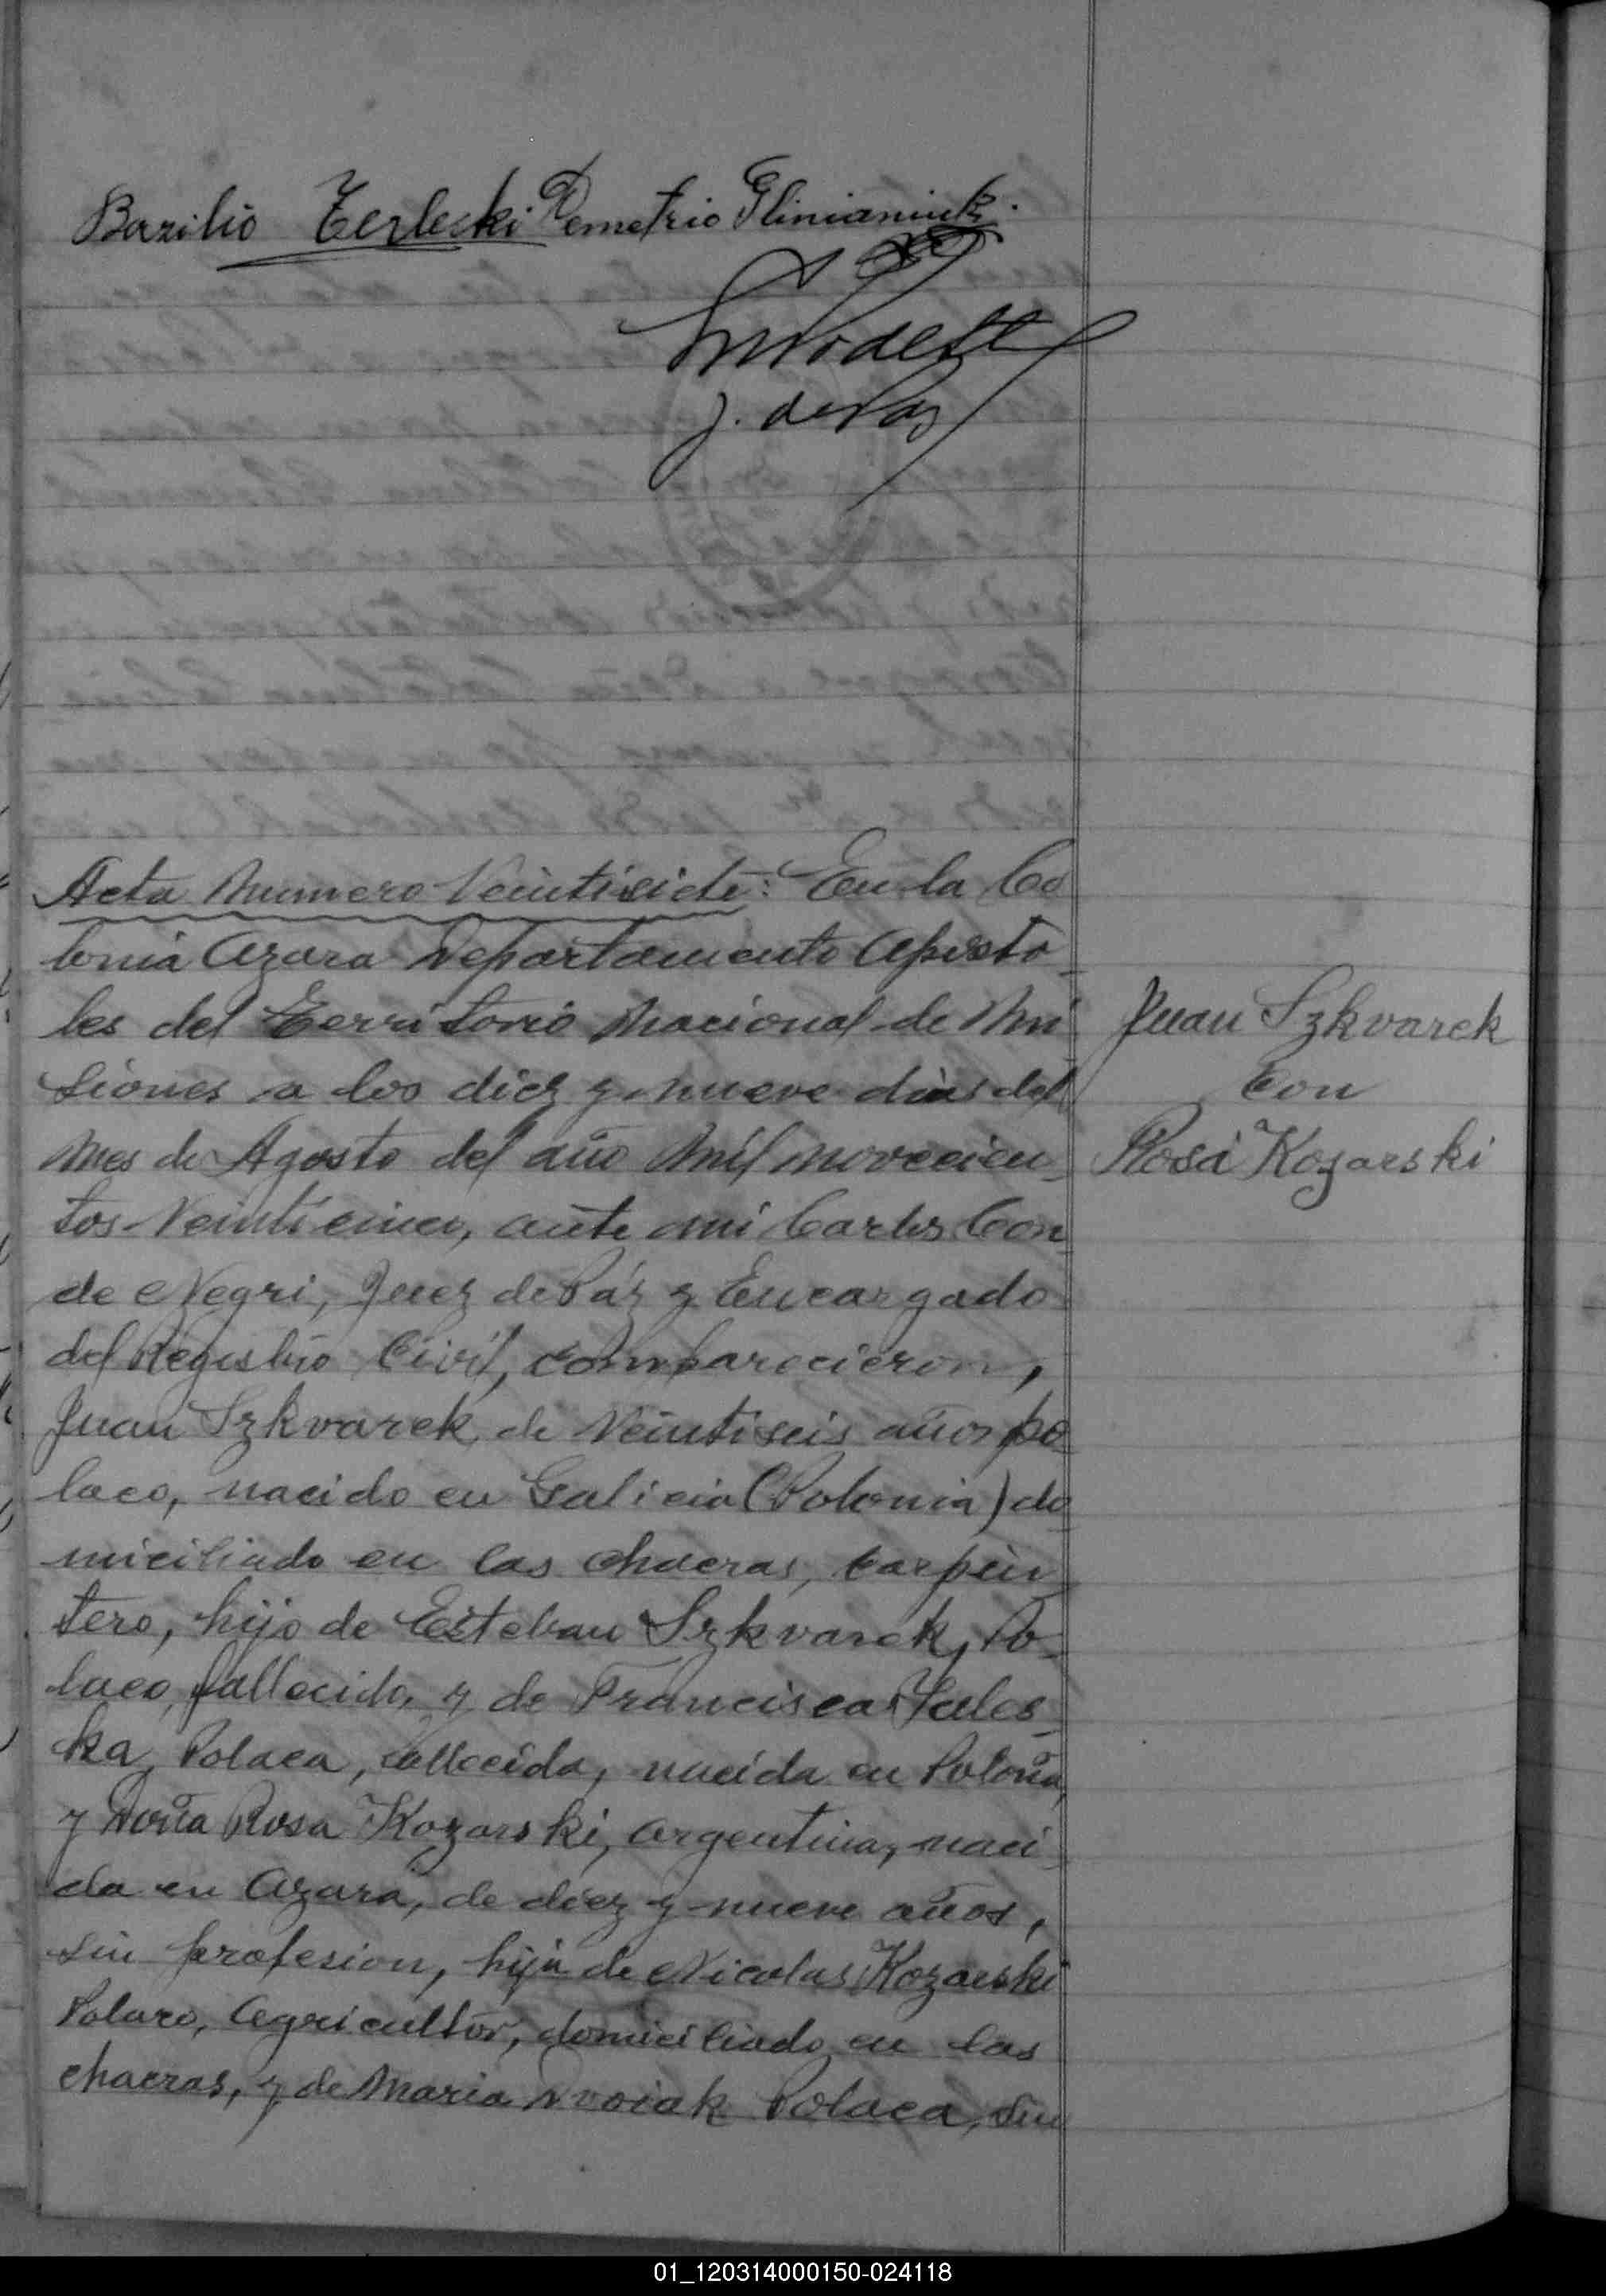 Bazilio Terleski Demetrio Glinianiuk.
J. de Paz
Acta Numero Veintisiete: En la Co
lonia Azara Departamento Aposto
les del Territorio Nacional de Mi
siones a los diez y nueve dias del
mes de Agosto del año mil novecien
tos Veinticinco, ante mi Carlos Con
de Negri, Juez de Páz y Encargado
del Registro Civil, comparecieron,
Juan Szkvarek, de veintiseis años po
laco, nacido en Galicia (Polonia) do
miciliado en las chacras, carpin
tero, hijo de Esteban Szkvarek, Po
laco, fallecido, y de Francisca
ka, Polaca, fallecida, nacida en Polonia,
y Doña Rosa Kozarski, argentina, naci
da en Azara, de diez y nueve años,
sin profesion, hija de Nicolas Kozarski
Polaco, agricultor, domiciliado en las
chacras, y de Maria Nvoiak Polaca, sin
Juan Szkvarek
Con
Rosa Kozarski
01_120314000150-024118